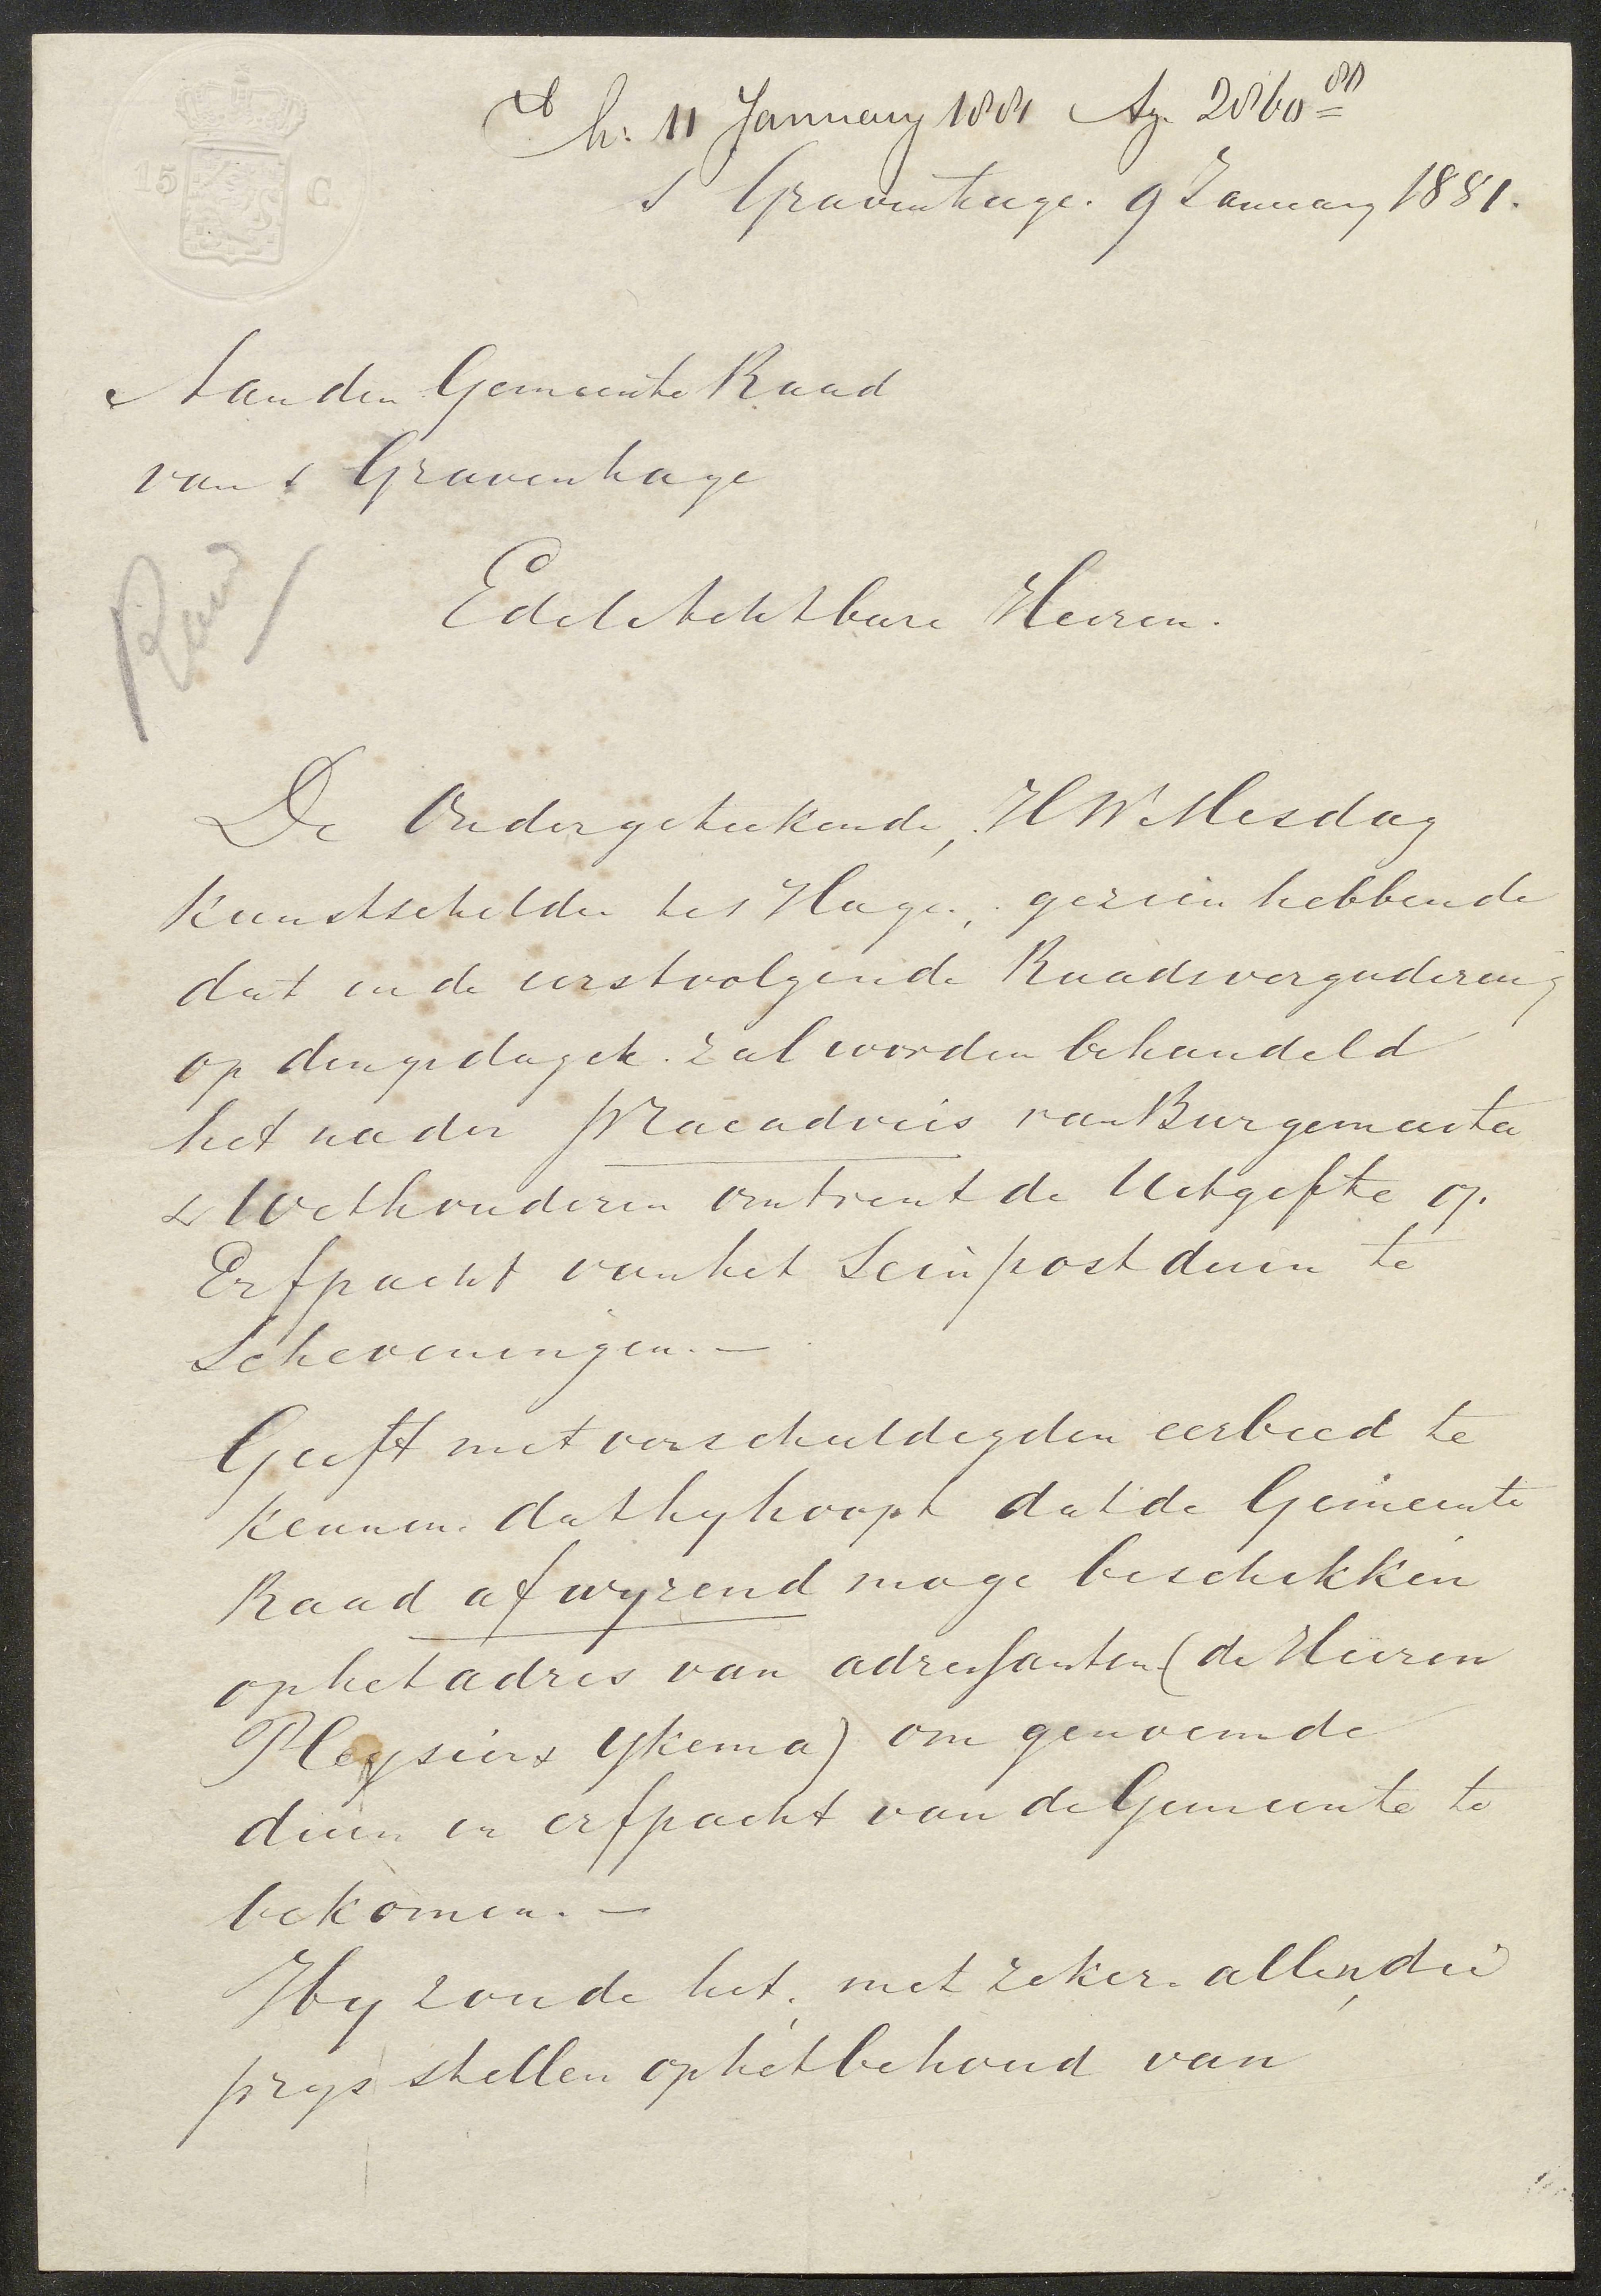 15 C
h: 11 January 1881 Ag. 2860 80
s Gravenhage. 9 January 1881.
Aan den Gemeente Raad
van s Gravenhage
Raad
Edel Achtbare Heeren.
De Ondergeteekende, H W Mesdag
Kunstschilder te s Hage, gezien hebbende
dat in de eerstvolgende Raadsvergadering
op dingsdag zal worden behandeld
het nader Praeadvies van Burgemeester
& Wethouderen omtrent de Uitgifte op
Erfpacht van het Seinpostduin te
Scheveningen. —
Geeft met verschuldigden eerbied te
kennen. dat hy hoopt dat de Gemeente
Raad afwyzend moge beschikken
op het adres van adressanten (de Heeren
Pleysier & Ykema) om genoemde
duin in erfpacht van de Gemeente te
bekomen. —
Hy zoude het, met zeker allen, die
prys stellen op het behoud van